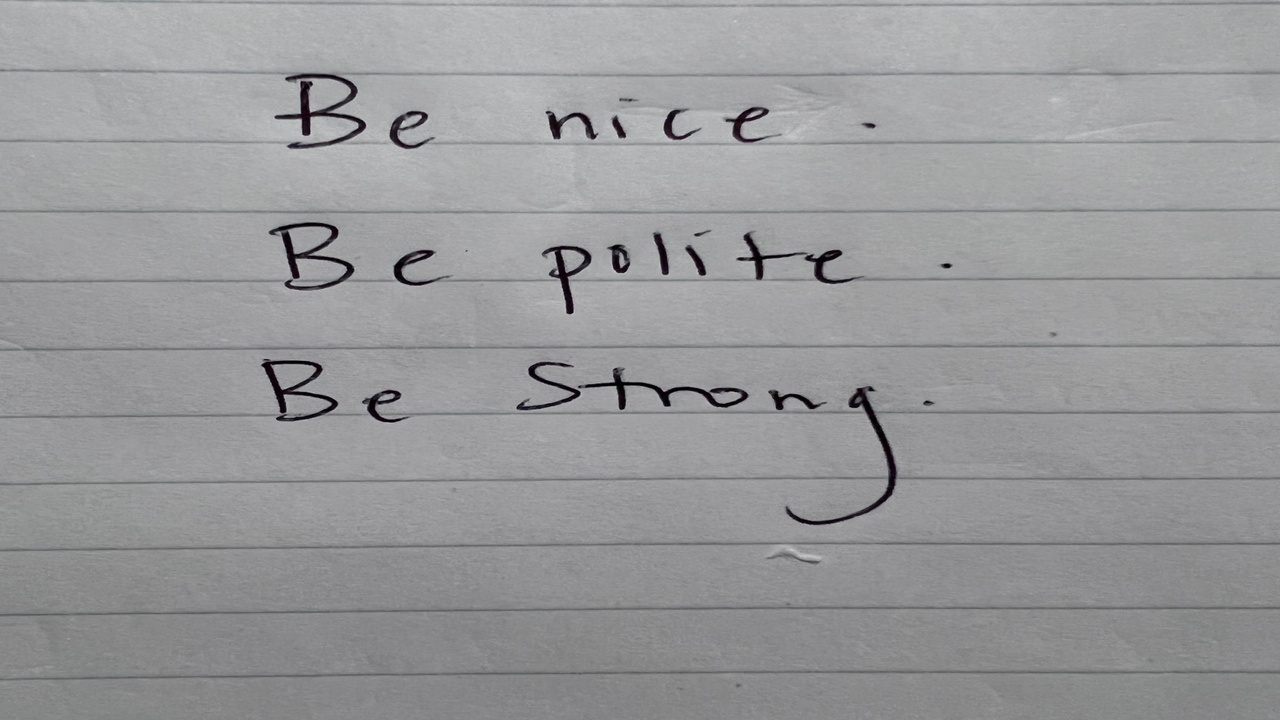 Be nice.
Be polite.
Be Strong.